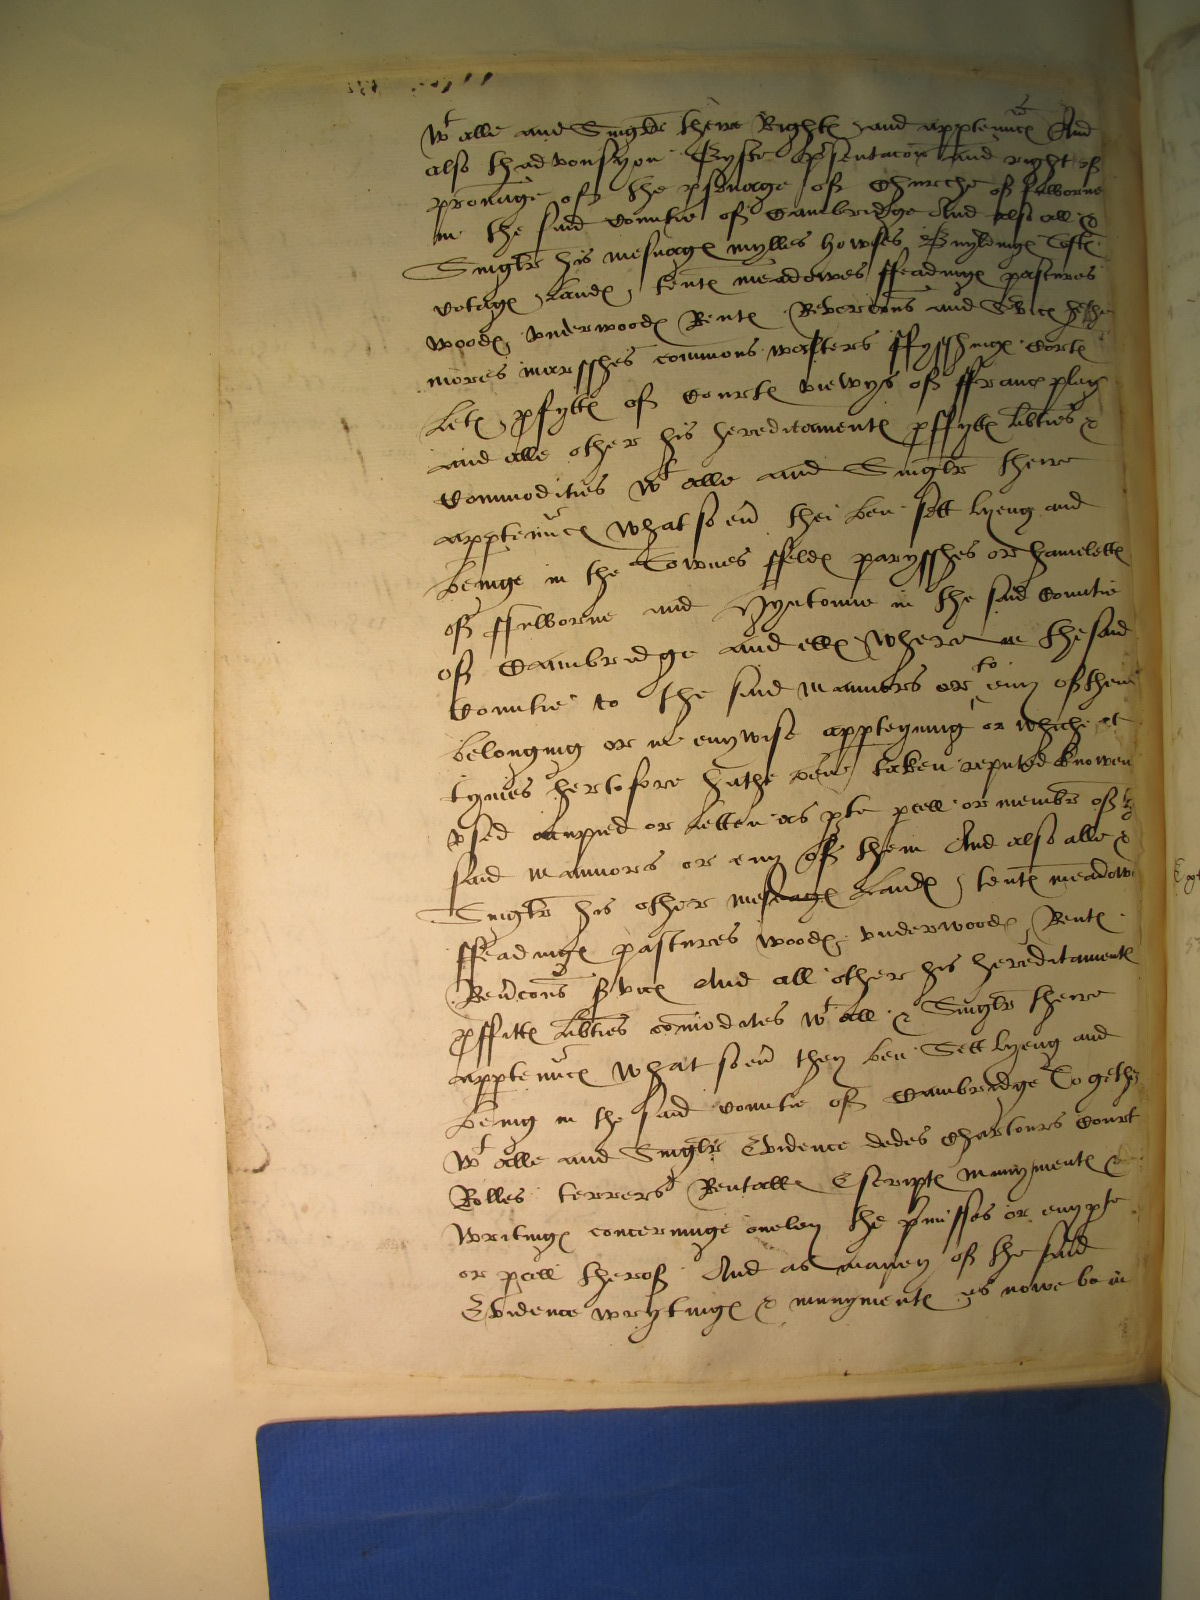 wt alle and Singler there Rightes and apptennces And
also thadvonsyon Gyfte psentacon and right of
pronage of the psonage of Churche of fulborne
in the said Countie of Cambridge And also all &
Singler his mesuages mylles howses Buyldinges Toftes
Cotages Landes tentes meadowes ffeadinges pastures
woodes underwoodes Rentes Revercons and Svices hethe
mores marsshes commons wasters ffysshinges Cortes
Letes pfyttes of Courtes viewys of ffrances pleg
and alle other his hereditamentes pffyttes libties &
Commodities wt alle and Singler there
apptenuces what so evr thei ben sett lyeng and
beinge in the Townes ffeldes parysshes or hamelettes
of ffulborne and Hyntonne in the said Countie
of Cambridge and elles where in the said
Countie to the said mannors or to eny of them
belonging or in enywise appteynning or whiche at
tymes hertofore hathe bene taken reputed knowen
used occupied or letten as pte pcell or membr of the
said mannors or eny of them And also alle &
Singler his other mesuages Landes tentes meadow
ffeadinges pastures woodes underwoodes Rentes
Revcons svices And all other his hereditamentes
pffittes libties comodites wt all & Singler there
apptenuces what so evr they ben Sett lyeng and
being in the said Countie of Cambridge Togethr
wt alle and Singler Evidence dedes Chartours Court
Rolles terrers Rentalles Escriptes munymentes &
writinges concerninge onely the pmisses or eny pte
or pcell therof And as maney of the said
Evidence wrytinges & munymentes as nowe be in